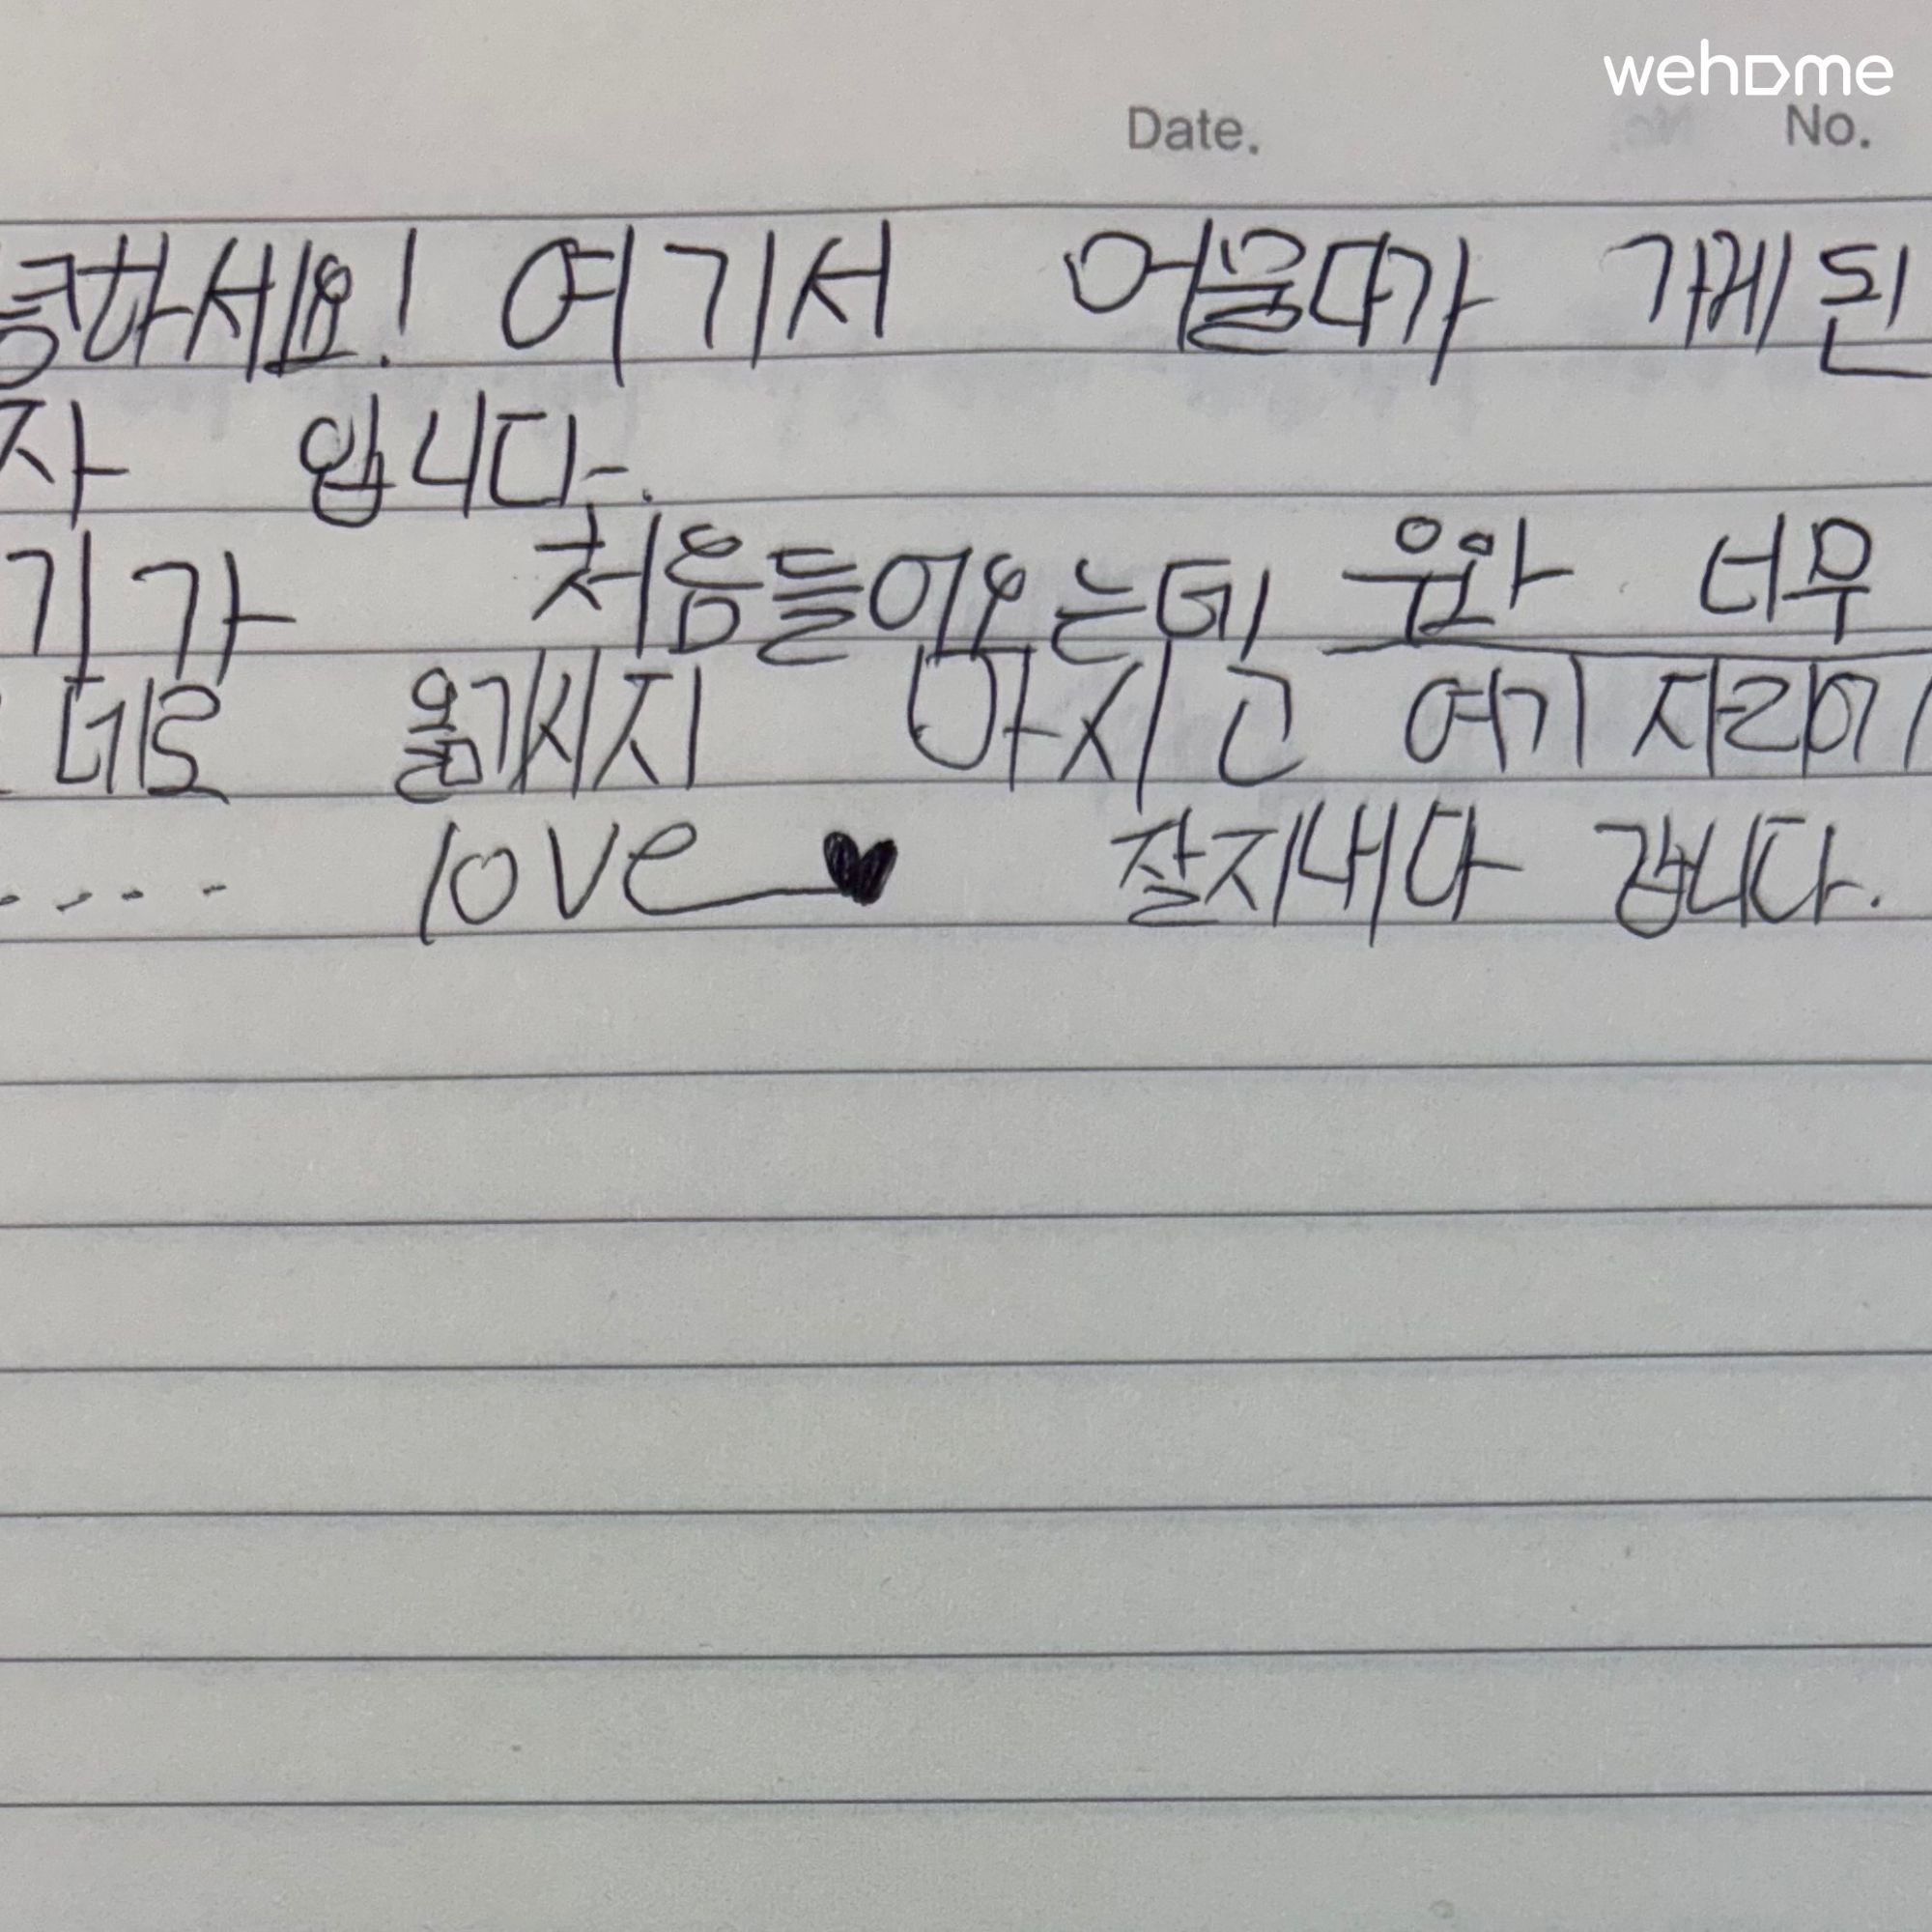 wehome
Date. No.
하세요! 여기서 어물다가 가게 된
자 입니다.
기가 처음들어오는데 우와 너무
데로 옮기시지 마시고 여기 자리에
..... love 잘지내다 갑니다.